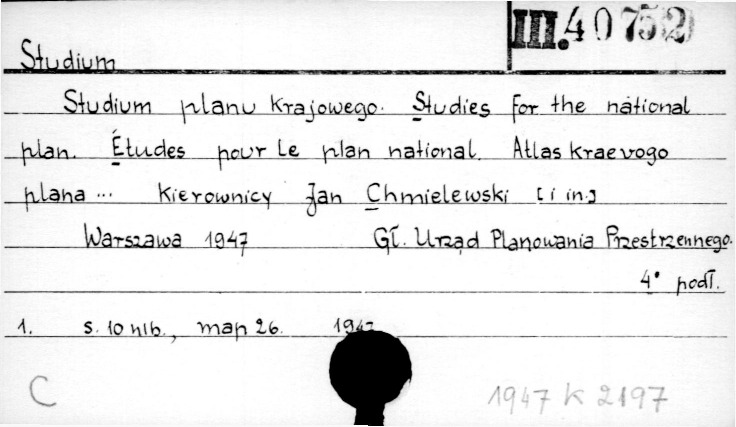 III. 40752
Studium
Studium planu krajowego. Studies for the national
plan. Études pour le plan national. Atlas kraevogo
plana ... Kierownicy Jan Chmielewski [i in.]
Warszawa 1947 Gł. Urząd Planowania Przestrzennego.
4° podł.
1. s. 10 nlb., map 26. 1947
C 1947 K 2197